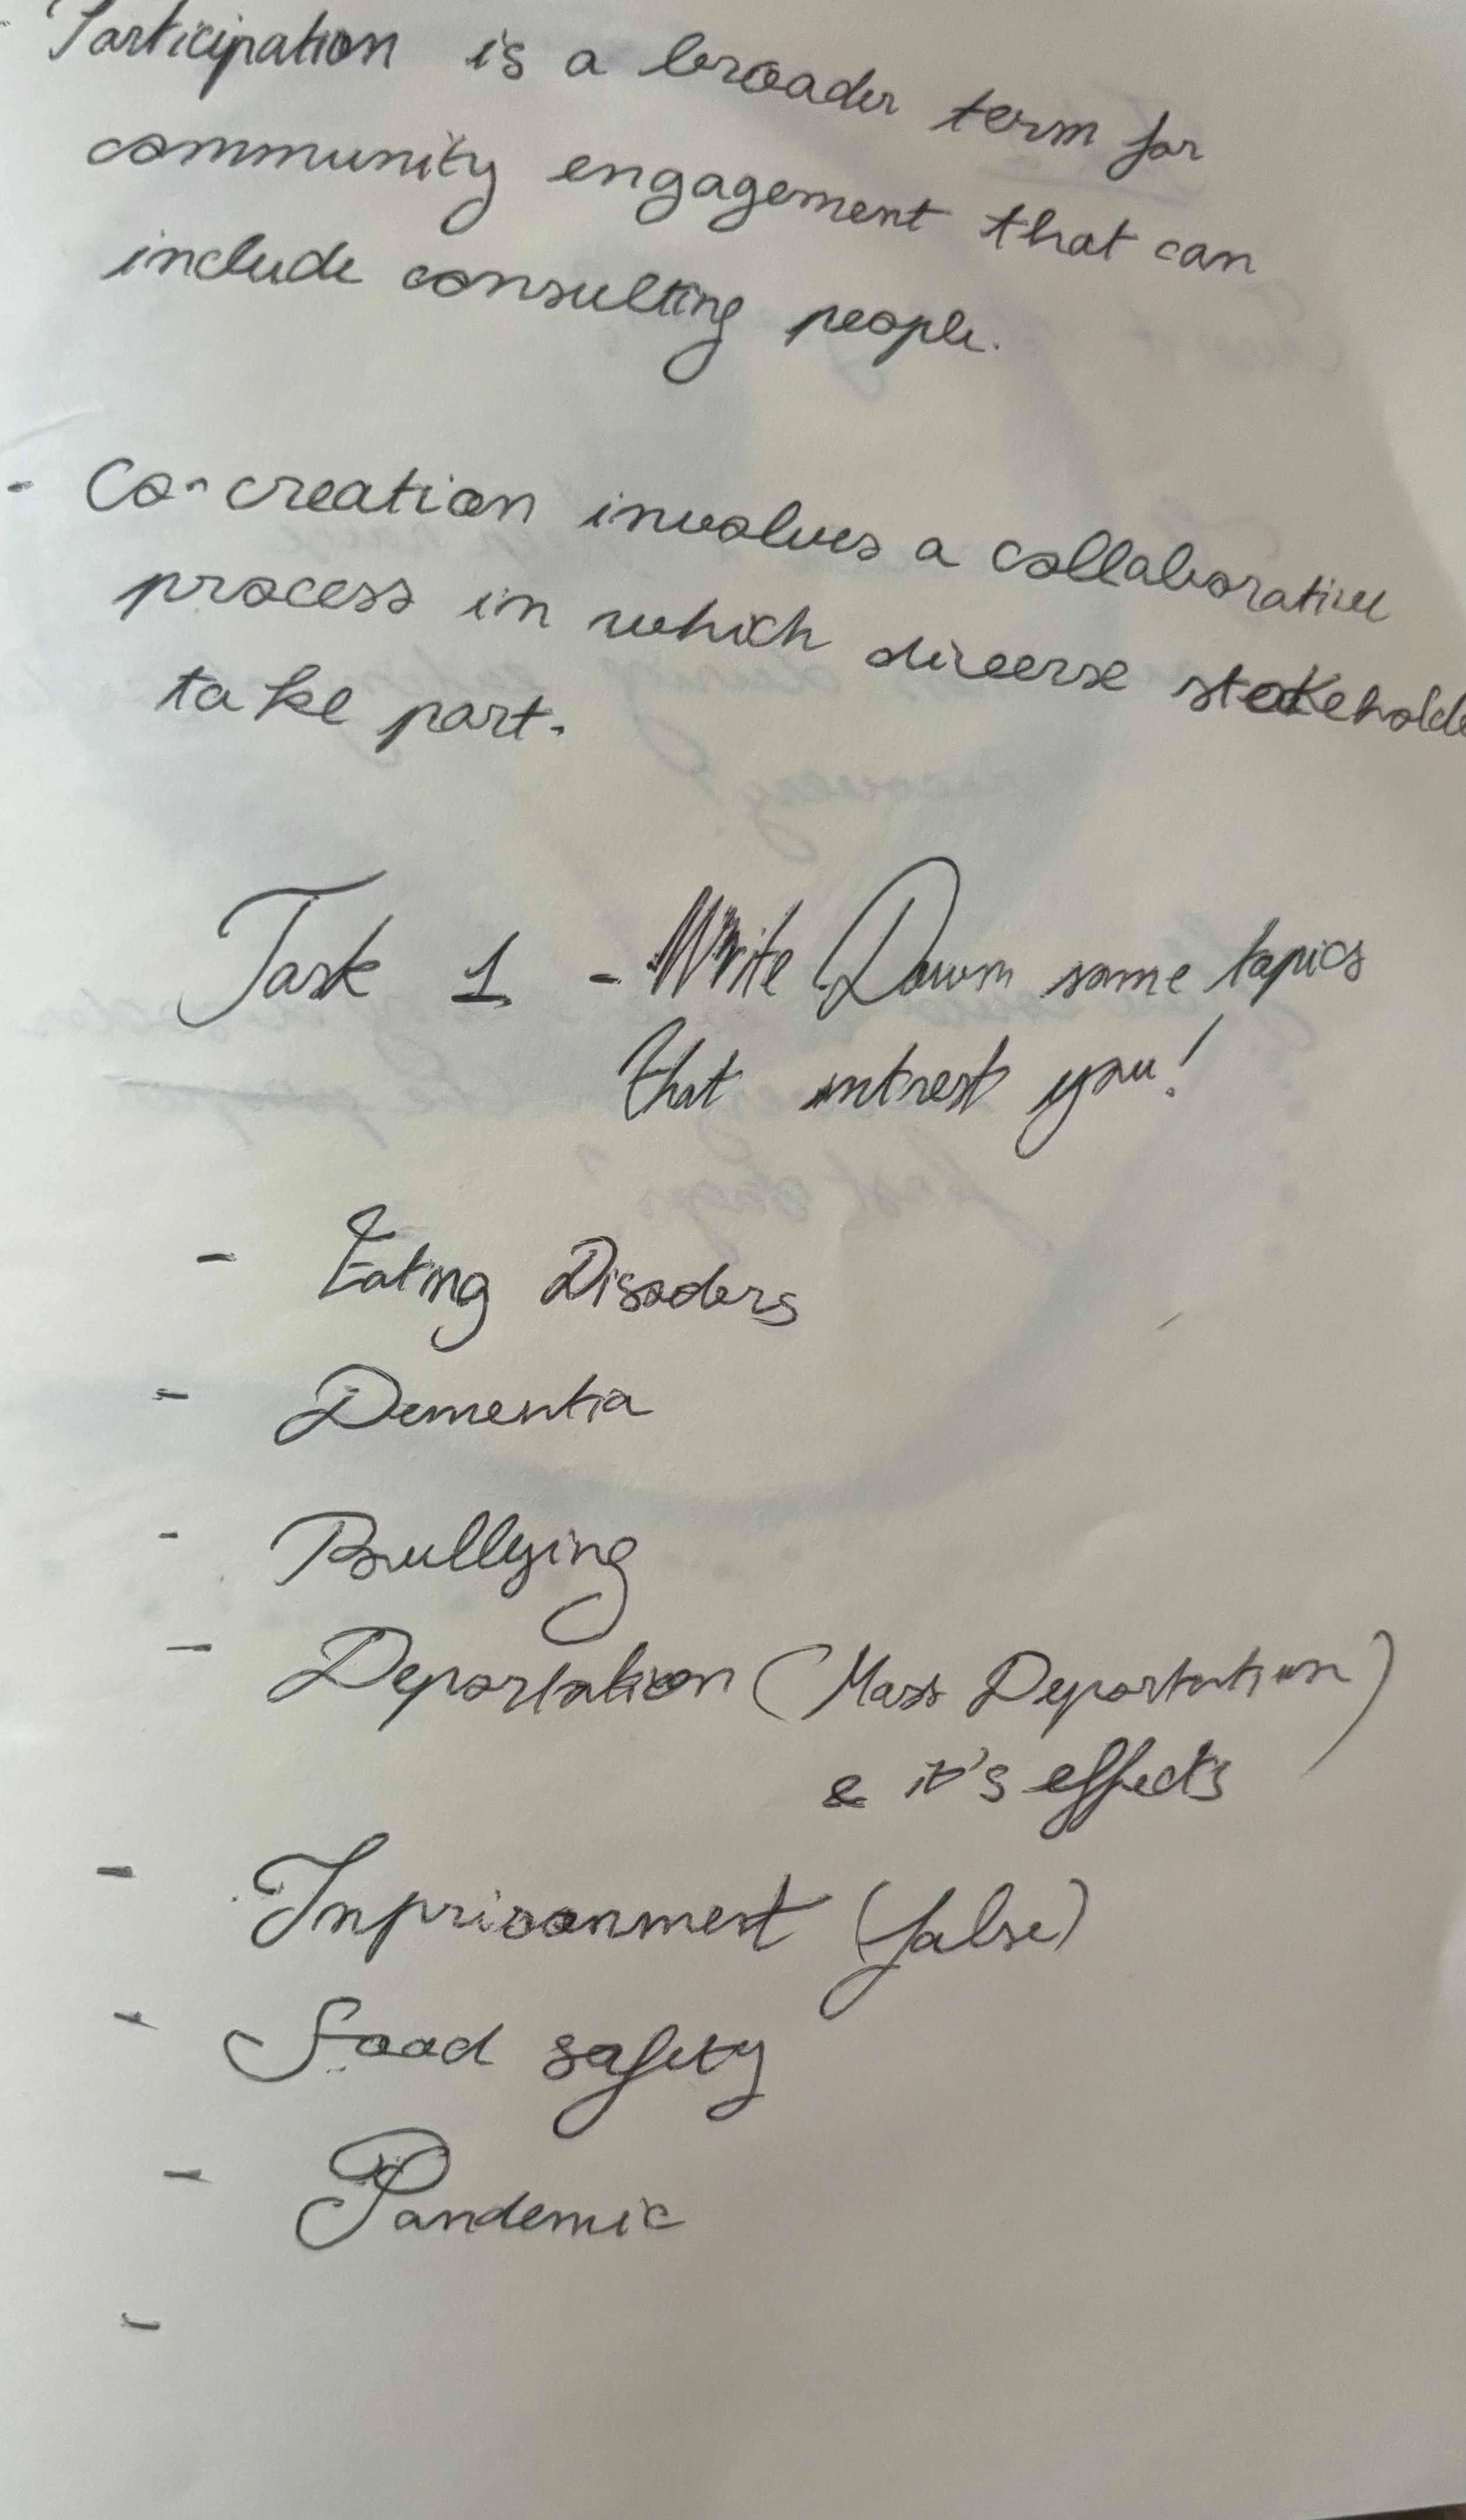 - Participation is a broader term for
community engagement that can
include consulting people.
- Co-creation involves a collaborative
process in which diverse stakeholde
take part.
Task 1 - Write Down some topics
that intrest you!
- Eating Disoders
- Dementia
- Bullying
- Deportation (Mass Deportation)
& it's effects
- Imprisonment (false)
- Food safety
- Pandemic
-